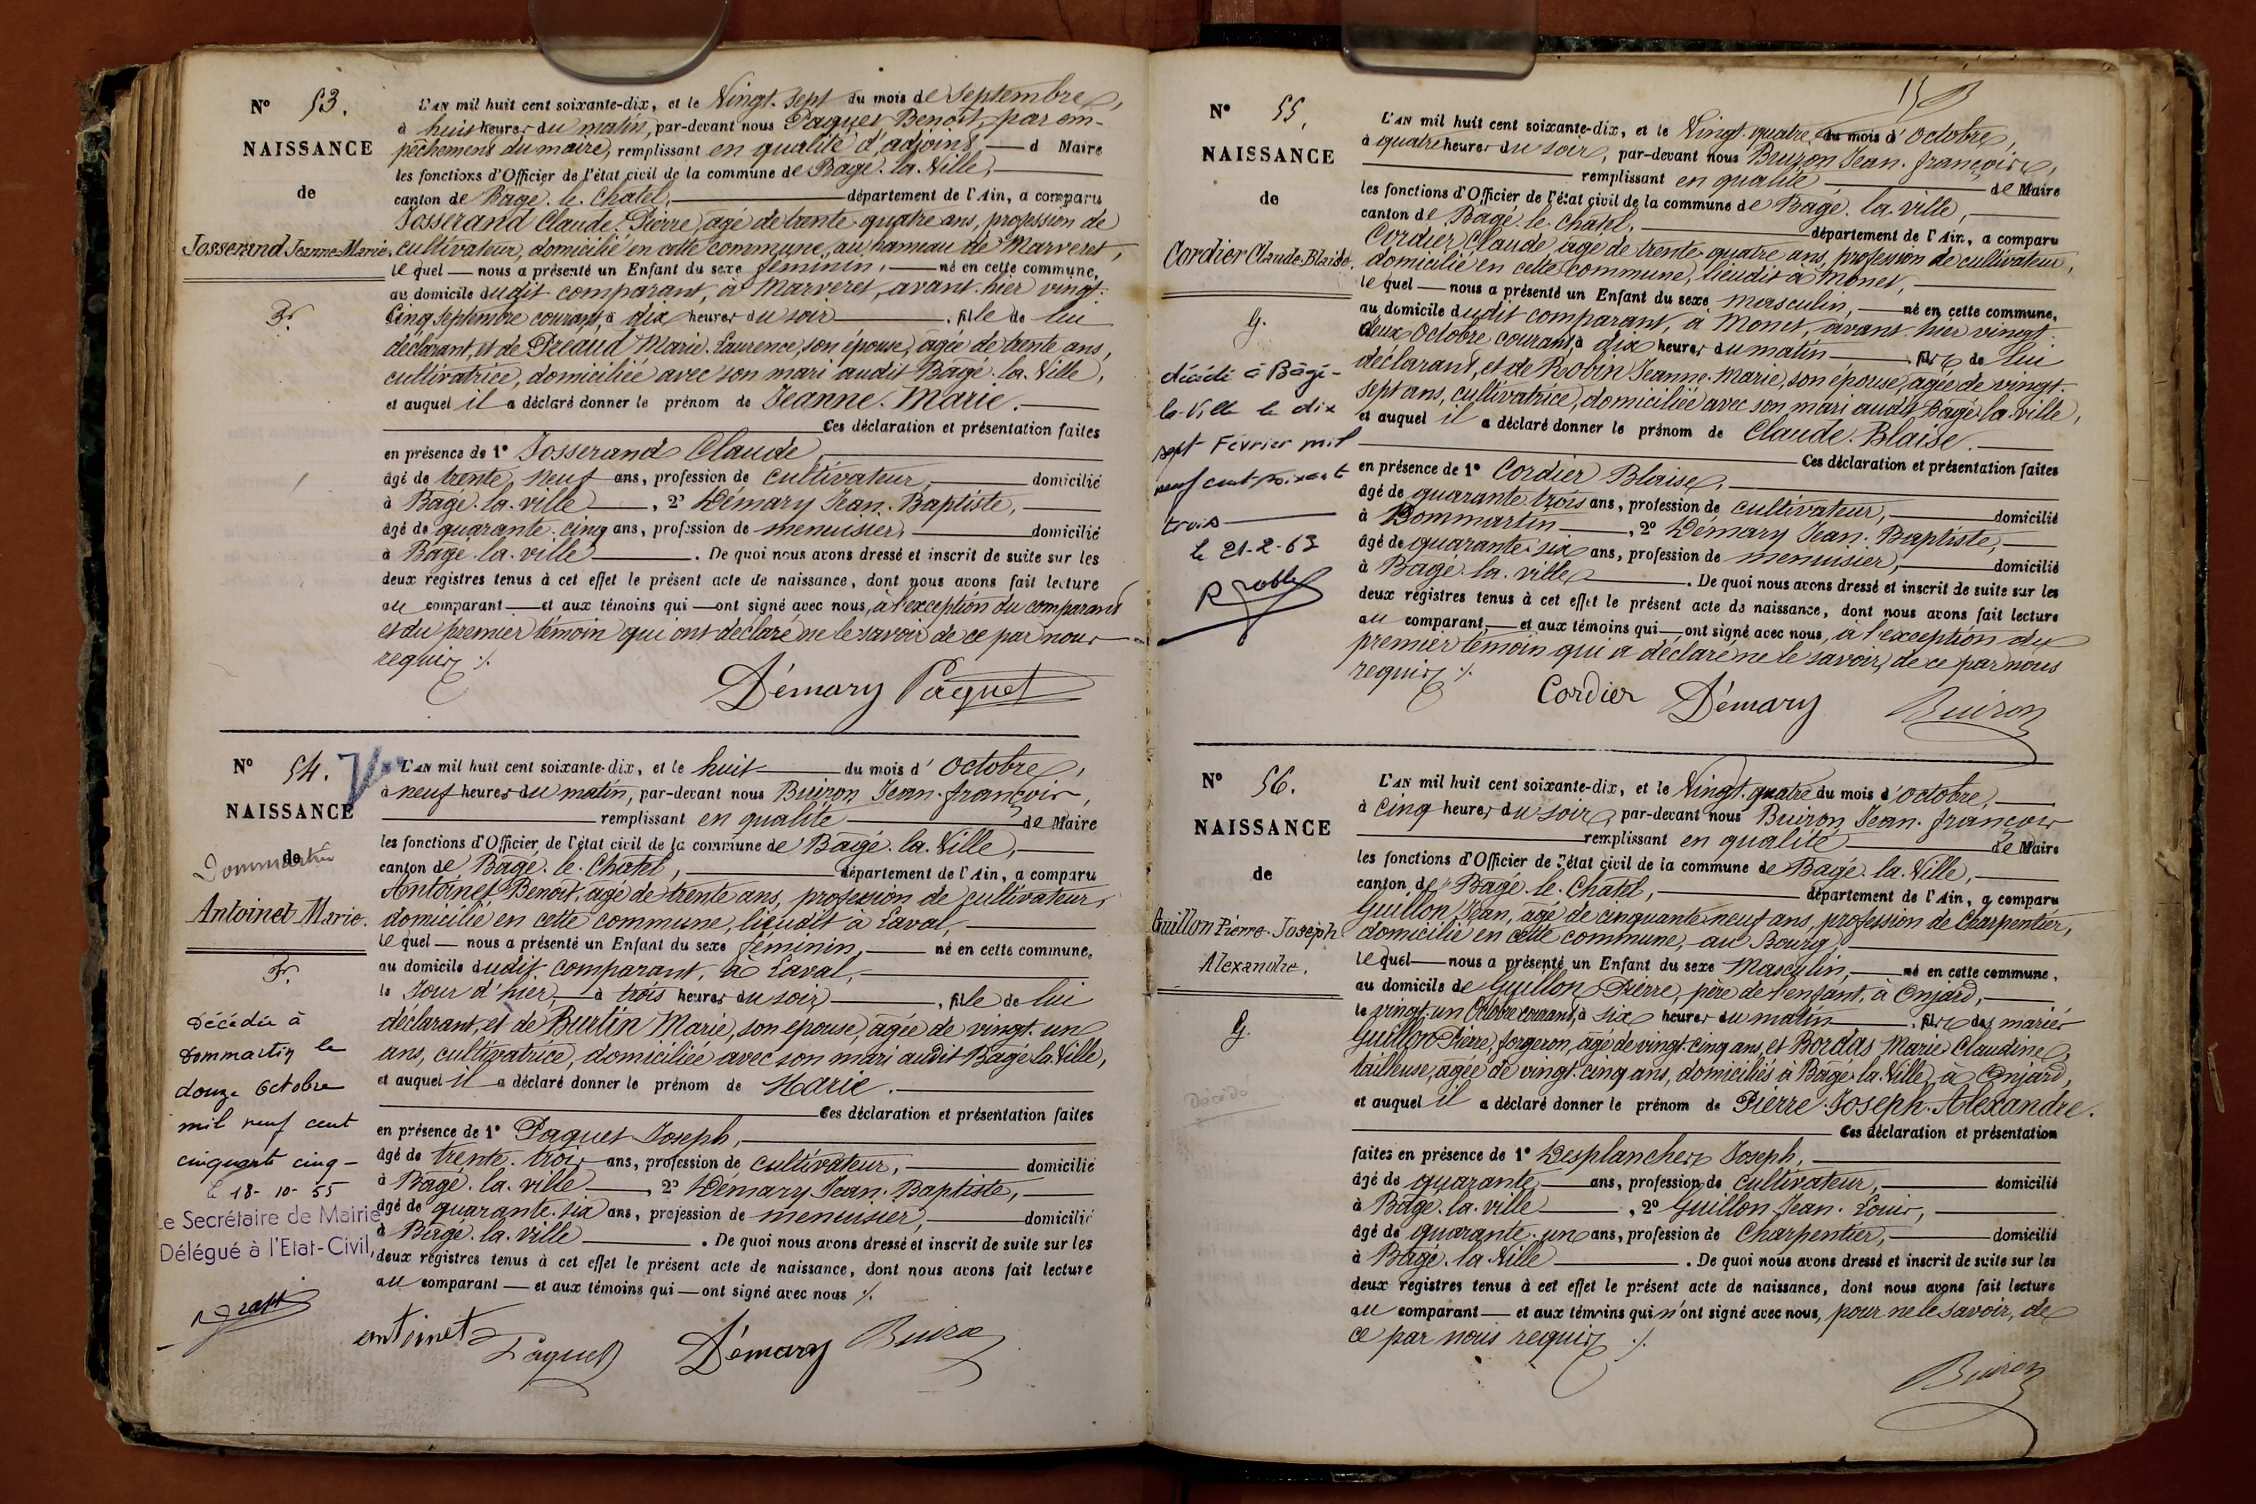 N° 53.
NAISSANCE
de
Josserand Jeanne-Marie.
Fr.
L'AN mil huit cent soixante-dix, et le Vingt-sept du mois de Septembre,
à huit heures du matin, par-devant nous Paquet Benoit, par em-
pêchement du maire, remplissant en qualité d'adjoint, d Maire
les fonctions d'Officier de l'état civil de la commune de Bagé-la-Ville,
canton de Bagé-le-Chatel, département de l'Ain, a comparu
Josserand Claude-Pierre, agé de trente-quatre ans, profession de
cultivateur, domicilié en cette commune, au hameau de Marveret,
le quel nous a présenté un Enfant du sexe féminin, né en cette commune,
au domicile dudit comparant, à Marveret, avant-hier vingt-
cinq Septembre courant, à dix heures du soir, fille de lui
déclarant, et de Préaud Marie-Laurence, son épouse, agée de trente ans,
cultivatrice, domiciliée avec son mari audit Bagé-la-Ville,
et auquel il a déclaré donner le prénom de Jeanne-Marie.
Ces déclaration et présentation faites
en présence de 1° Josserand Claude,
âgé de trente-neuf ans, profession de cultivateur, domicilié
à Bagé-la-ville, 2° Démary Jean-Baptiste,
âgé de quarante-cinq ans, profession de menuisier, domicilié
à Bagé-la-ville. De quoi nous avons dressé et inscrit de suite sur les
deux registres tenus à cet effet le présent acte de naissance, dont nous avons fait lecture
au comparant et aux témoins qui ont signé avec nous, à l'exception du comparant
et du premier témoin qui ont déclaré ne le savoir de ce par nous
requis ./.
Démary Paquet
N° 54.
NAISSANCE
de
Dommartin
Antoinet Marie.
Fr.
Décédée à
Dommartin le
douze Octobre
mil neuf cent
cinquante cinq -
le 18-10-55
Le Secrétaire de Mairie
Délégué à l'Etat-Civil,
L'AN mil huit cent soixante-dix, et le huit du mois d'Octobre,
à neuf heures du matin, par-devant nous Buiron Jean-françois,
remplissant en qualité de Maire
les fonctions d'Officier de l'état civil de la commune de Bagé-la-Ville,
canton de Bagé-le-Chatel, département de l'Ain, a comparu
Antoinet Benoit, agé de trente ans, profession de cultivateur,
domicilié en cette commune, lieudit à Laval,
le quel nous a présenté un Enfant du sexe féminin, né en cette commune,
au domicile dudit comparant, à Laval,
le Jour d'hier, à trois heures du soir, fille de lui
déclarant, et de Burtin Marie, son épouse, agée de vingt-un
ans, cultivatrice, domiciliée avec son mari audit Bagé-la-Ville,
et auquel il a déclaré donner le prénom de Marie.
Ces déclaration et présentation faites
en présence de 1° Paquet Joseph,
âgé de trente-trois ans, profession de cultivateur, domicilié
à Bagé-la-ville, 2° Démary Jean-Baptiste,
âgé de quarante-six ans, profession de menuisier, domicilié
à Bagé-la-ville. De quoi nous avons dressé et inscrit de suite sur les
deux registres tenus à cet effet le présent acte de naissance, dont nous avons fait lecture
au comparant et aux témoins qui ont signé avec nous ./.
antoinet Paquet Démary Buiron
15
N° 55.
NAISSANCE
de
Cordier Claude-Blaise.
G.
décédé à Bâgé-
la-Ville le dix
sept Février mil
neuf cent soixante
trois
le 21-2-63
L'AN mil huit cent soixante-dix, et le Vingt-quatre du mois d'Octobre,
à quatre heures du soir, par-devant nous Buiron Jean-françois,
remplissant en qualité de Maire
les fonctions d'Officier de l'état civil de la commune de Bagé-la-ville,
canton de Bagé-le-chatel, département de l'Ain, a comparu
Cordier Claude agé de trente-quatre ans, profession de cultivateur,
domicilié en cette commune, lieudit à Monet,
le quel nous a présenté un Enfant du sexe masculin, né en cette commune,
au domicile dudit comparant, à Monet, avant-hier vingt-
deux Octobre courant, à dix heures du matin, fils de lui
déclarant, et de Robin Jeanne-Marie, son épouse, agée de vingt-
sept ans, cultivatrice, domiciliée avec son mari audit Bagé-la-ville,
et auquel il a déclaré donner le prénom de Claude-Blaise.
Ces déclaration et présentation faites
en présence de 1° Cordier Blaise,
âgé de quarante-trois ans, profession de cultivateur, domicilié
à Dommartin, 2° Démary Jean-Baptiste,
âgé de quarante-six ans, profession de menuisier, domicilié
à Bagé-la-ville. De quoi nous avons dressé et inscrit de suite sur les
deux registres tenus à cet effet le présent acte de naissance, dont nous avons fait lecture
au comparant, et aux témoins qui ont signé avec nous, à l'exception du
premier témoin qui a déclaré ne le savoir, de ce par nous
requis ./.
Cordier Démary Buiron
N° 56.
NAISSANCE
de
Guillon Pierre-Joseph
Alexandre.
G.
Décédé
L'AN mil huit cent soixante-dix, et le Vingt-quatre du mois d'Octobre,
à cinq heures du soir, par-devant nous Buiron Jean-françois
remplissant en qualité de Maire
les fonctions d'Officier de l'état civil de la commune de Bagé-la-Ville,
canton de Bagé-le-Chatel, département de l'Ain, a comparu
Guillon Jean, agé de cinquante-neuf ans, profession de Charpentier,
domicilié en cette commune, au Bourg,
le quel nous a présenté un Enfant du sexe Masculin, né en cette commune,
au domicile de Guillon Pierre, père de l'enfant, à Onjard,
le vingt-un Octobre courant, à six heures du matin, fils des mariés
Guillon Pierre, forgeron, agé de vingt-cinq ans, et Bordas Marie Claudine,
tailleuse, agée de vingt-cinq ans, domiciliés à Bagé-la-Ville, à Onjard,
et auquel il a déclaré donner le prénom de Pierre-Joseph-Alexandre.
Ces déclaration et présentation
faites en présence de 1° Desplanches Joseph,
âgé de quarante ans, profession de cultivateur, domicilié
à Bagé-la-ville, 2° Guillon Jean-Louis,
âgé de quarante-un ans, profession de Charpentier, domicilié
à Bagé-la-Ville. De quoi nous avons dressé et inscrit de suite sur les
deux registres tenus à cet effet le présent acte de naissance, dont nous avons fait lecture
au comparant et aux témoins qui n'ont signé avec nous, pour ne le savoir, de
ce par nous requis ./.
Buiron